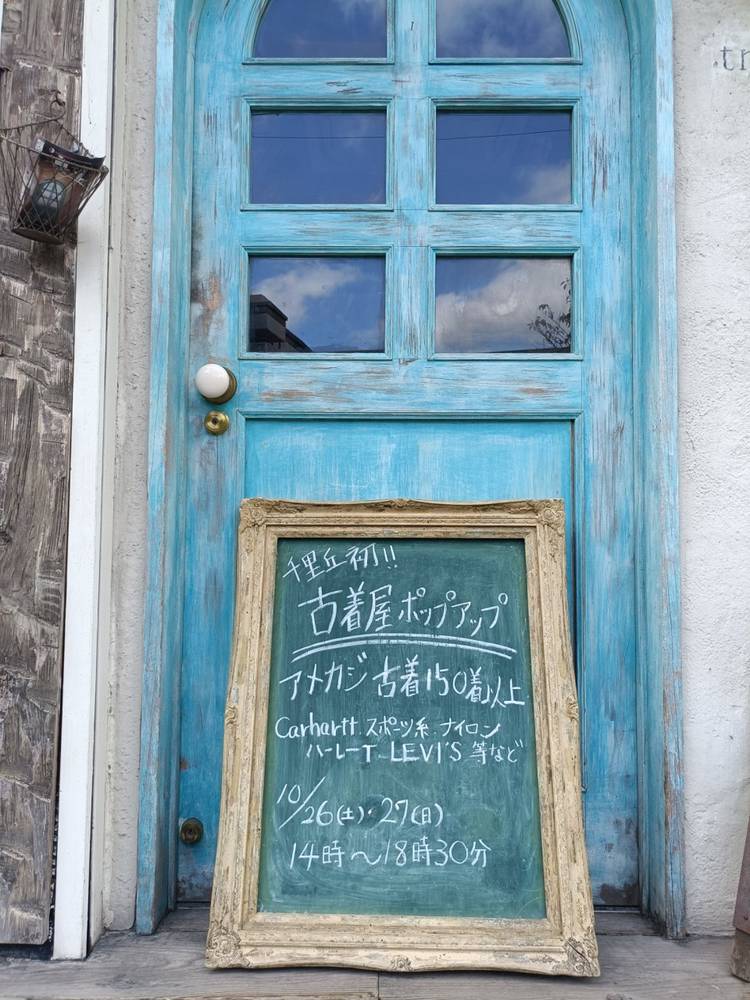 千里丘初!!
古着屋ポップアップ
アメカジ古着150着以上
Carhartt.スポーツ系.ナイロン
ハーレーT.LEVI'S 等など
10/26(土)・27(日)
14時〜18時30分
tr